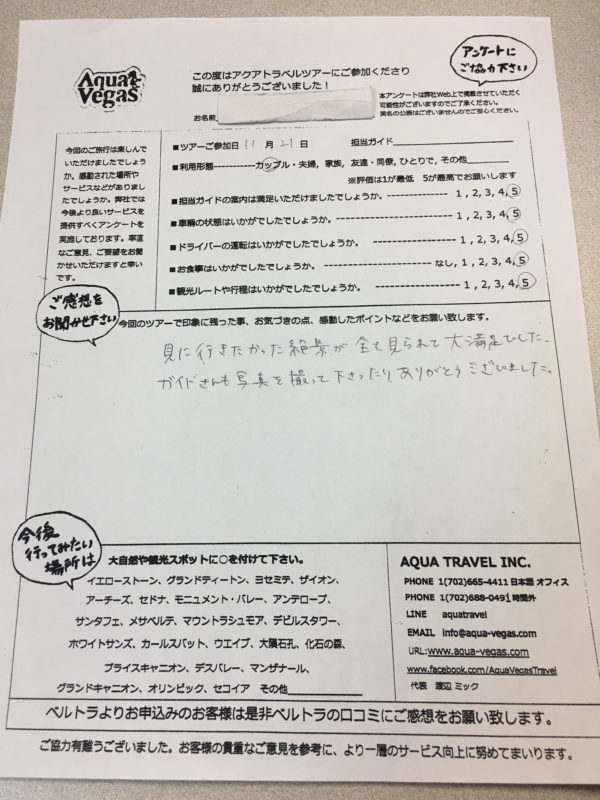 Aqua
Vegas
この度はアクアトラベルツアーにご参加くださり
誠にありがとうございました！
お名前
アンケートに
ご協力下さい
本アンケートは弊社Web上で掲載させていただく
可能性がございますのでご了承ください。
実名の公表はございませんのでご安心ください。
今回のご旅行は楽しんで
いただけましたでしょう
か。感動された場所や
サービスなどがありまし
たでしょうか。弊社では
今後より良いサービスを
提供すべくアンケートを
実施しております。率直
なご意見、ご要望をお聞
かせいただけますと幸い
です。
■ツアーご参加日 11 月 21 日 担当ガイド
■利用形態------------カップル・夫婦, 家族, 友達・同僚, ひとりで, その他
※評価は1が最低 5が最高でお願いします
■担当ガイドの案内は満足いただけましたでしょうか。--------------- 1 , 2, 3, 4, 5
■車輌の状態はいかがでしたでしょうか。---------------------------- 1 , 2, 3, 4, 5
■ドライバーの運転はいかがでしたでしょうか。 -------------------- 1 , 2, 3, 4, 5
■お食事はいかがでしたでしょうか。 ------------------------ なし, 1, 2, 3, 4, 5
■観光ルートや行程はいかがでしたでしょうか。 -------------------- 1 , 2, 3, 4, 5
ご感想を
お聞かせ下さい
今回のツアーで印象に残った事、お気づきの点、感動したポイントなどをお願い致します。
見に行きたかった絶景が全て見られて大満足でした。
ガイドさんも写真を撮って下さったりありがとうございました。
今後
行ってみたい
場所は
大自然や観光スポットに○を付けて下さい。
イエローストーン、グランドティートン、ヨセミテ、ザイオン、
アーチーズ、セドナ、モニュメント・バレー、アンテロープ、
サンタフェ、メサベルテ、マウントラシュモア、デビルスタワー、
ホワイトサンズ、カールスバット、ウエイブ、大隕石孔、化石の森、
ブライスキャニオン、デスバレー、マンザナール、
グランドキャニオン、オリンピック、セコイア その他
AQUA TRAVEL INC.
PHONE 1(702)665-4411 日本語 オフィス
PHONE 1(702)688-0491 時間外
LINE aquatravel
EMAIL info@aqua-vegas.com
URL:www.aqua-vegas.com
www.facebook.com/AquaVegasTravel
代表 渡辺 ミック
ベルトラよりお申込みのお客様は是非ベルトラの口コミにご感想をお願い致します。
ご協力有難うございました。お客様の貴重なご意見を参考に、より一層のサービス向上に努めてまいります。